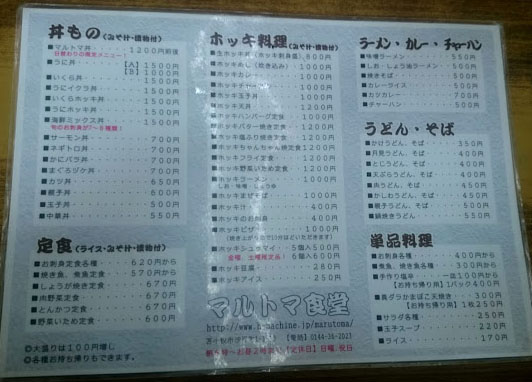 丼もの(みそ汁・漬物付)
マルトマ丼 1200円前後
日替わりの限定メニュー!
うに丼 [A] 1500円
[B] 1000円
いくら丼 1500円
うにイクラ丼 1500円
いくらホッキ丼 1500円
うにホッキ丼 1500円
海鮮ミックス丼 1500円
旬のお刺身が7~8種類!
サーモン丼 700円
ネギトロ丼 700円
かにバラ丼 700円
まぐろヅケ丼 700円
カツ丼 650円
親子丼 550円
玉子丼 500円
中華丼 550円
定食(ライス・みそ汁・漬物付)
お刺身定食各種 620円から
焼き魚、煮魚定食 570円から
しょうが焼き定食 670円
肉野菜定食 670円
とんかつ定食 670円
野菜いため定食 600円
◎大盛りは100円増し
◎各種お持ち帰りもできます。
ホッキ料理(みそ汁・漬物付)
生ホッキ丼(ホッキ刺身盛)
ホッキめし(炊き込み) 1000円
ホッキカレー 1000円
ホッキ天丼
ホッキ玉子丼
ホッキ天定食
ホッキハンバーグ定食 1000円
ホッキバター焼き定食 1200円
ホッキ塩ふり焼き定食 1200円
ホッキちゃんちゃん焼定食 1200円
ホッキフライ定食 1200円
ホッキ野菜いため定食
ホッキラーメン 1000円
しお・味噌・しょうゆ
ホッキまぜそば 1000円
ホッキ汁 400円
ホッキのお刺身 400円
ホッキピザ 1000円
(焼き上がりまで10分ほどいただきます)
ホッキシュウマイ 5個入500円
金曜、土曜限定品! 6個入600円
ホッキ豆腐 280円
ホッキアイス 250円
マルトマ食堂
http://www.h-machine.jp/marutoma/
苫小牧市汐見町1-1-13 【電話】0144-36-2023
朝5時~お昼2時まで【定休日】日曜、祝日
ラーメン・カレー・チャーハン
味噌ラーメン 550円
しお、しょう油ラーメン 500円
焼きそば 500円
カレーライス 500円
カツカレー 700円
チャーハン 500円
うどん・そば
かけうどん、そば 350円
月見うどん、そば 400円
とじうどん、そば 400円
天ぷらうどん、そば 400円
肉うどん、そば 450円
かしわうどん、そば 450円
親子うどん、そば 500円
鍋焼きうどん 550円
単品料理
お刺身各種 400円から
煮魚、焼き魚各種 300円から
手作り塩辛 一皿100円から
【お持ち帰り用】1パック400円
真ダラかまぼこ天焼き 300円
【お持ち帰り用】1枚225円
サラダ各種 250円
玉子スープ 220円
ライス 170円